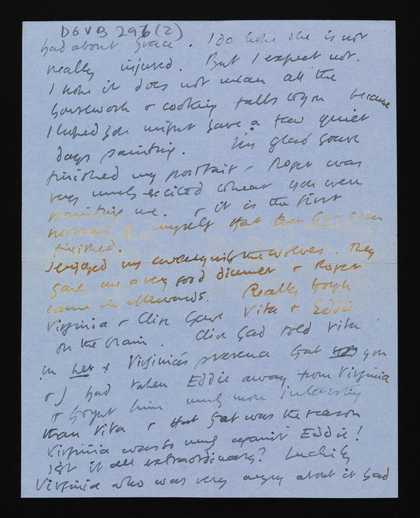 DGVB 296 (2)
bad about Grace. I do hope she is not
really injured. But I expect not.
I hope it does not mean all the
housework & cooking falls to you because
I hoped you might have a few quiet
days painting. I'm glad you've
finished my portrait - Roger was
very much excited to hear you were
painting me. & it is the first
portrait of myself that has
finished.
I enjoyed my evening with the Wolves. They
gave me a very good dinner & Roger
came in afterwards. Really both
Virginia & Clive have Vita & Eddie
on the brain. Clive had told Vita
in her & Virginia's presence that you
& I had taken Eddie away from Virginia
& thought him much more interesting
than Vita & that that was the reason
Virginia was so much against Eddie!
Isn't it all extraordinary? Luckily
Virginia who was very angry about it had